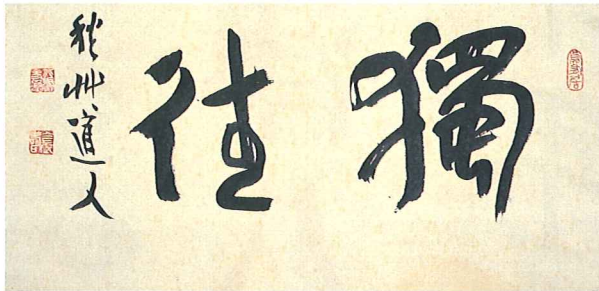 獨往
秋艸道人